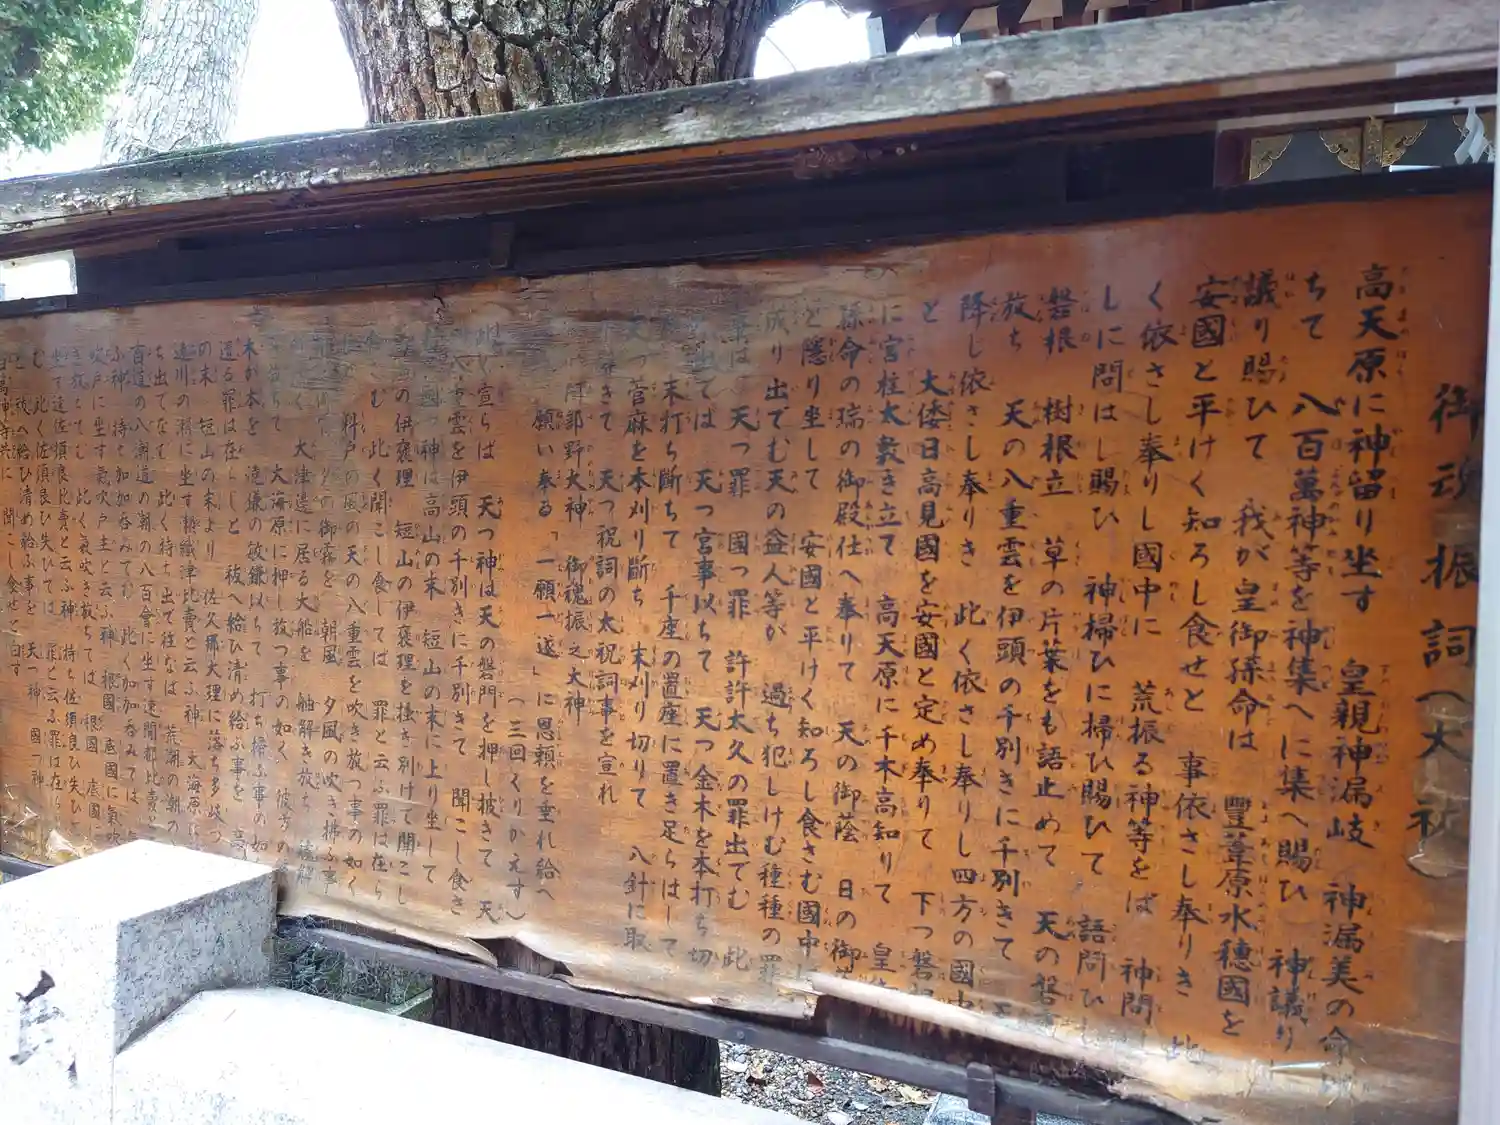 御魂振詞(大祓)
高天原に神留り坐す 皇親神漏岐 神漏美の命
ちて 八百萬神等を神集へに集へ賜ひ 神議り
議り賜ひて 我が皇御孫命は 豐葦原水穗國を
安國と平けく知ろし食せと 事依さし奉りき 此
く依さし奉りし國中に 荒振る神等をば 神問
しに問はし賜ひ 神掃ひに掃ひ賜ひて 語問ひし
磐根 樹根立 草の片葉をも語止めて 天の磐
放ち 天の八重雲を伊頭の千別きに千別きて
降し依さし奉りき 此く依さし奉りし四方の國中
と 大倭日高見國を安國と定め奉りて 下つ磐根
に宮柱太敷き立て 高天原に千木高知りて 皇
孫命の瑞の御殿仕へ奉りて 天の御蔭 日の御
と隱り坐して 安國と平けく知ろし食さむ國中に
成り出でむ天の益人等が 過ち犯しけむ種種の罪
は 天つ罪 國つ罪 許許太久の罪出でむ 此
ては 天つ宮事以ちて 天つ金木を本打ち切
末打ち斷ちて 千座の置座に置き足らはして
菅麻を本刈り斷ち 末刈り切りて 八針に取
きて 天つ祝詞の太祝詞事を宣れ
阿部野大神 御魂振之大神
願い奉る「一願一遂」に恩賴を垂れ給へ
(三回くりかえす)
宣らば 天つ神は天の磐門を押し披きて 天
雲を伊頭の千別きに千別きて 聞こし食さ
神は高山の末 短山の末に上り坐して
の伊褒理 短山の伊褒理を搔き別けて聞こし
む 此く聞こし食しては 罪と云ふ罪は在ら
科戸の風の天の八重雲を吹き放つ事の如く
の御霧を 朝風 夕風の吹き拂ふ事
く 大津邊に居る大船を 舳解き放ち 艫解
て 大海原に押し放つ事の如く 彼方の
木が本を 燒鎌の敏鎌以ちて 打ち掃ふ事の如
遺る罪は在らじと 祓へ給ひ清め給ふ事を 高
の末 短山の末より 佐久那太理に落ち多岐つ
速川の瀨に坐す瀨織津比賣と云ふ神 大海原
ち出でなむ 此く持ち出で往なば 荒潮の潮の
百道の八潮道の潮の八百會に坐す速開都比賣と
ふ神 持ち加加呑みてむ 此く加加呑みては
吹戸に坐す氣吹戸主と云ふ神 根國 底國に氣吹
き放ちてむ 此く氣吹き放ちては 根國 底國に
坐す速佐須良比賣と云ふ神 持ち佐須良ひ失ひて
む 此く佐須良ひ失ひては 罪と云ふ罪は在ら
と 祓へ給ひ清め給ふ事を 天つ神 國つ神
神等共に 聞こし食せと白す